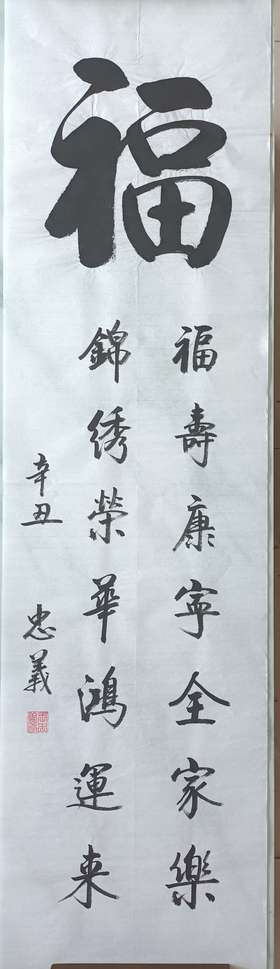 福
福壽康寧全家樂
錦绣榮華鴻運来
辛丑
忠義